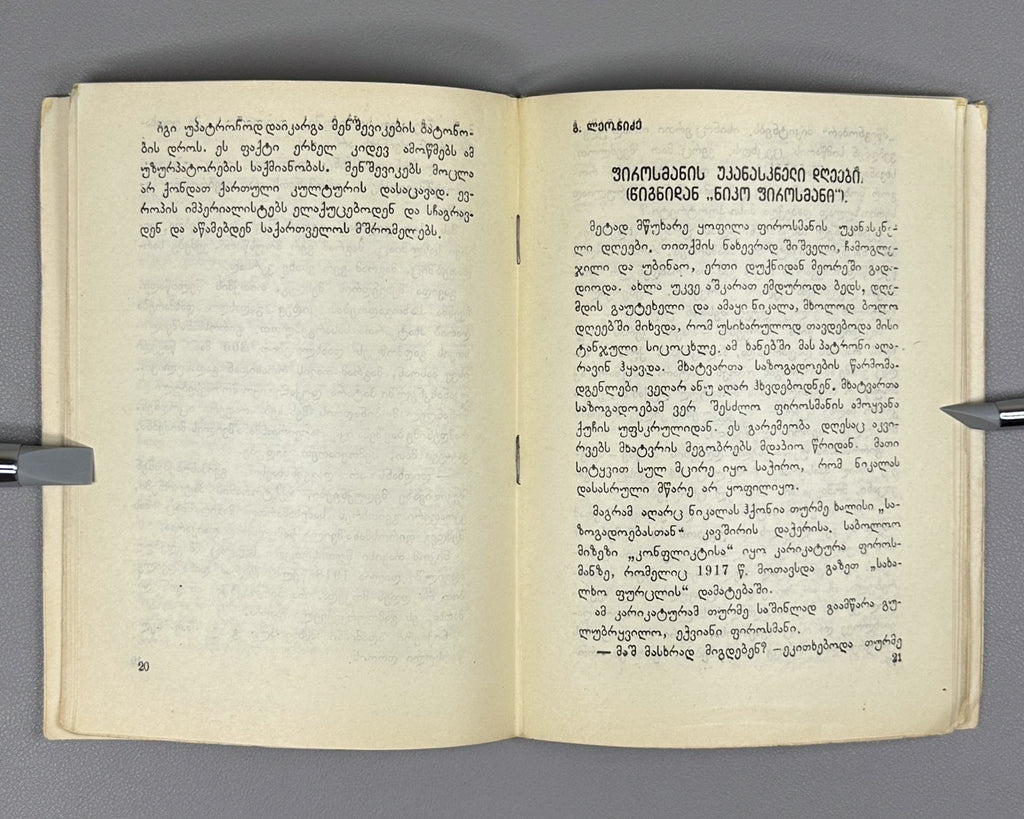 იგი უპატრონოდ დაიკარგა მენშევიკების ბატონო-
ბის დროს. ეს ფაქტი ერხელ კიდევ ამოწმებს ამ
უზურპატორების საქმიანობას. მენშევიკებს მოცლა
არ ქონდათ ქართული კულტურის დასაცავად. ევ-
როპის იმპერიალისტებს ელაქუცებოდენ და სჩაგრავ-
დენ და აწამებდენ საქართველოს მშრომელებს.
20
გ. ლეონიძე
ფიროსმანის უკანასკნელი დღეები.
(წიგნიდან „ნიკო ფიროსმანი“).
მეტად მწუხარე ყოფილა ფიროსმანის უკანასკნე-
ლი დღეები. თითქმის ნახევრად შიშველი, ჩამოგლე-
ჯილი და უბინაო, ერთი დუქნიდან მეორეში გად-
დიოდა. ახლა უკვე აშკარათ ემდუროდა ბედს, დღე-
მდის გაუტეხელი და ამაყი ნიკალა, მხოლოდ ბოლო
დღეებში მიხვდა, რომ უსიხარულოდ თავდებოდა მისი
ტანჯული სიცოცხლე. ამ ხანებში მას პატრონი აღა-
რავინ ჰყავდა. მხატვართა საზოგადოების წარმომა-
დგენლები ვეღარ ან-უ აღარ ჰხვდებოდნენ. მხატვართა
საზოგადოებამ ვერ შესძლო ფიროსმანის ამოყვანა
ქუჩის უფსკრულიდან. ეს გარემეობა დღესაც აკვი-
რვებს მხატვრის მეგობრებს მდაბიო წრიდან. მათი
სიტყვით სულ მცირე იყო საჭირო, რომ ნიკალას
დასასრული მწარე არ ყოფილიყო.
მაგრამ აღარც ნიკალას ჰქონია თურმე ხალისი „სა-
ზოგადოებასთან“ კავშირის დაჭერისა. საბოლოო
მიზეზი „კონფლიკტისა“ იყო კარიკატურა ფიროს-
მანზე, რომელიც 1917 წ. მოთავსდა გაზეთ „სახა-
ლხო ფურცლის“ დამატებაში.
ამ კარიკატურამ თურმე საშინლად გაამწარა გუ-
ლუბრყვილო, ეჭვიანი ფიროსმანი.
— მაშ მასხრად მიგდებენ? — ეკითხებოდა თურმე
21